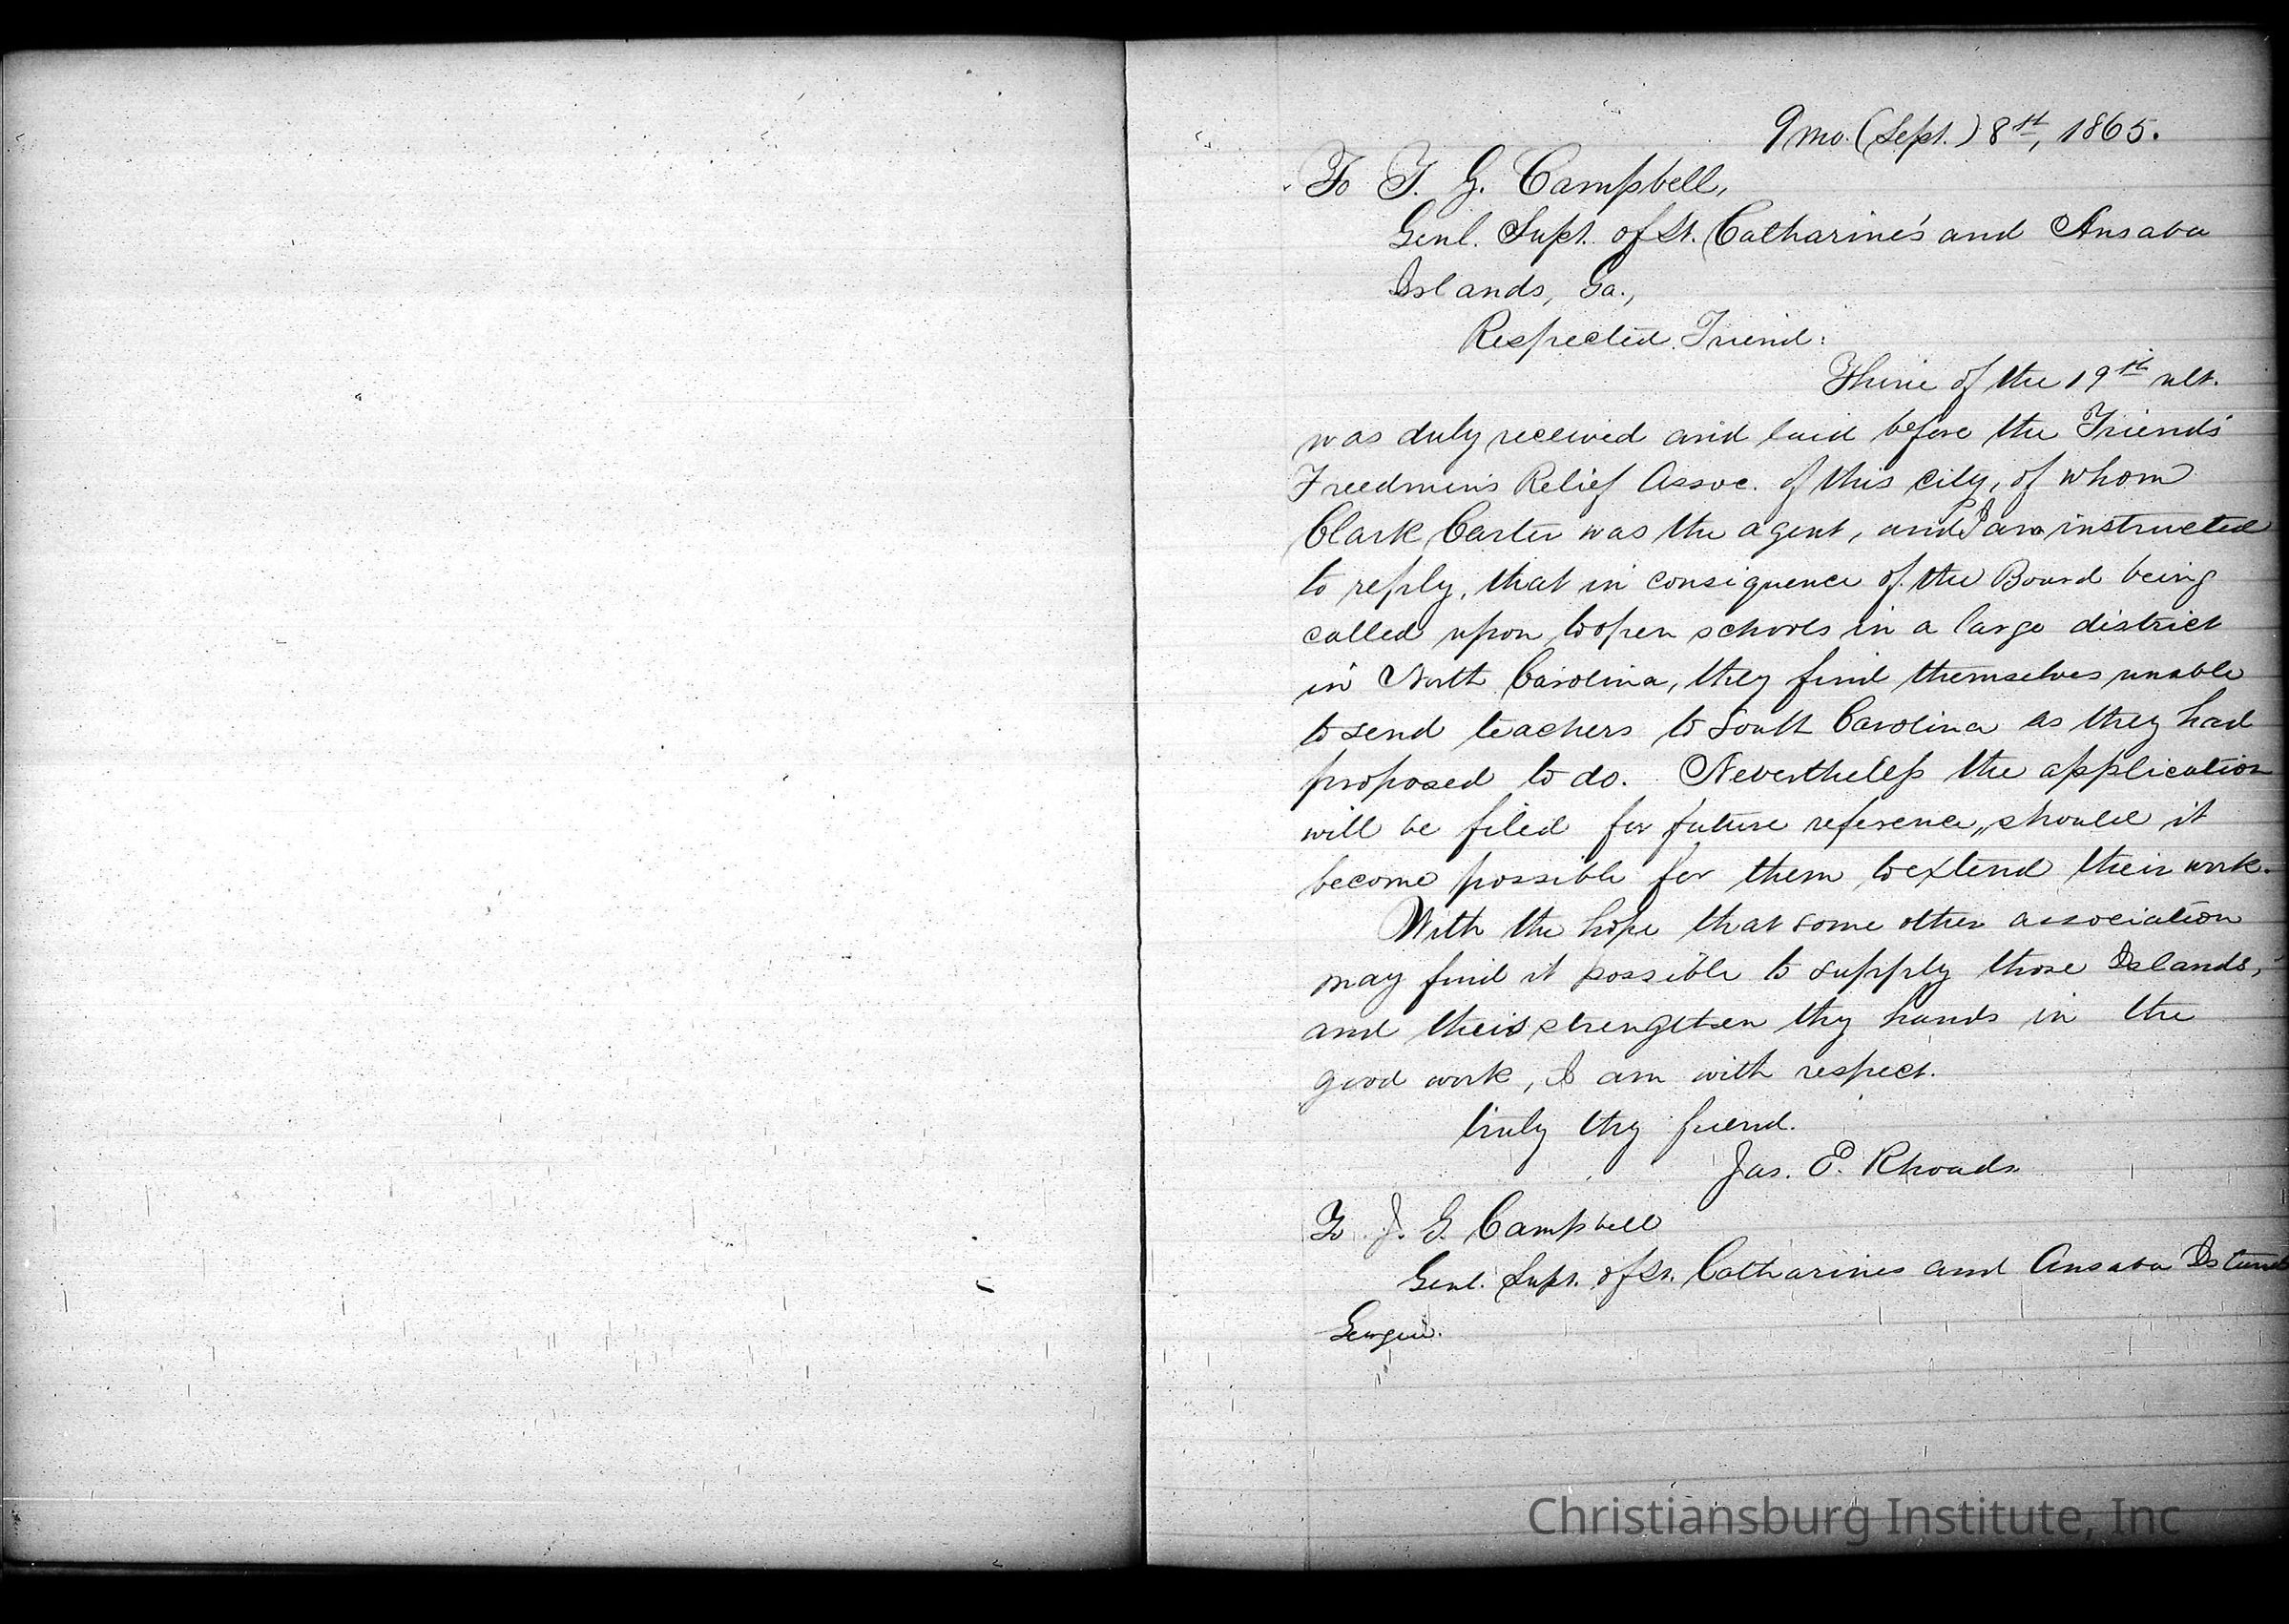 9 mo. (Sept.) 8th, 1865.
To T. G. Campbell,
Genl. Supt. of St. Catharine's and Ansaba
Islands, Ga.,
Respected Friend:
Thine of the 19th ult.
was duly received and laid before the Friends'
Freedmen's Relief Assoc. of this city, of whom
Clark Carter was the agent, and I am instructed
to reply, that in consequence of the Board being
called upon to open schools in a large district
in North Carolina, they find themselves unable
to send teachers to South Carolina as they had
proposed to do. Nevertheless the application
will be filed for future reference, should it
become possible for them to extend their work.
With the hope that some other association
may find it possible to supply those Islands,
and strengthen thy hands in the
good work, I am with respect.
truly thy friend.
Jas. E. Rhoads
To J. G. Campbell
Genl. Supt. of St. Catharines and Ansaba Islands
Georgia.
Christiansburg Institute, Inc